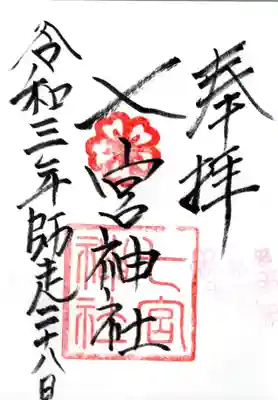 奉拝
七宮神社
令和三年師走二十八日
七宮
神社